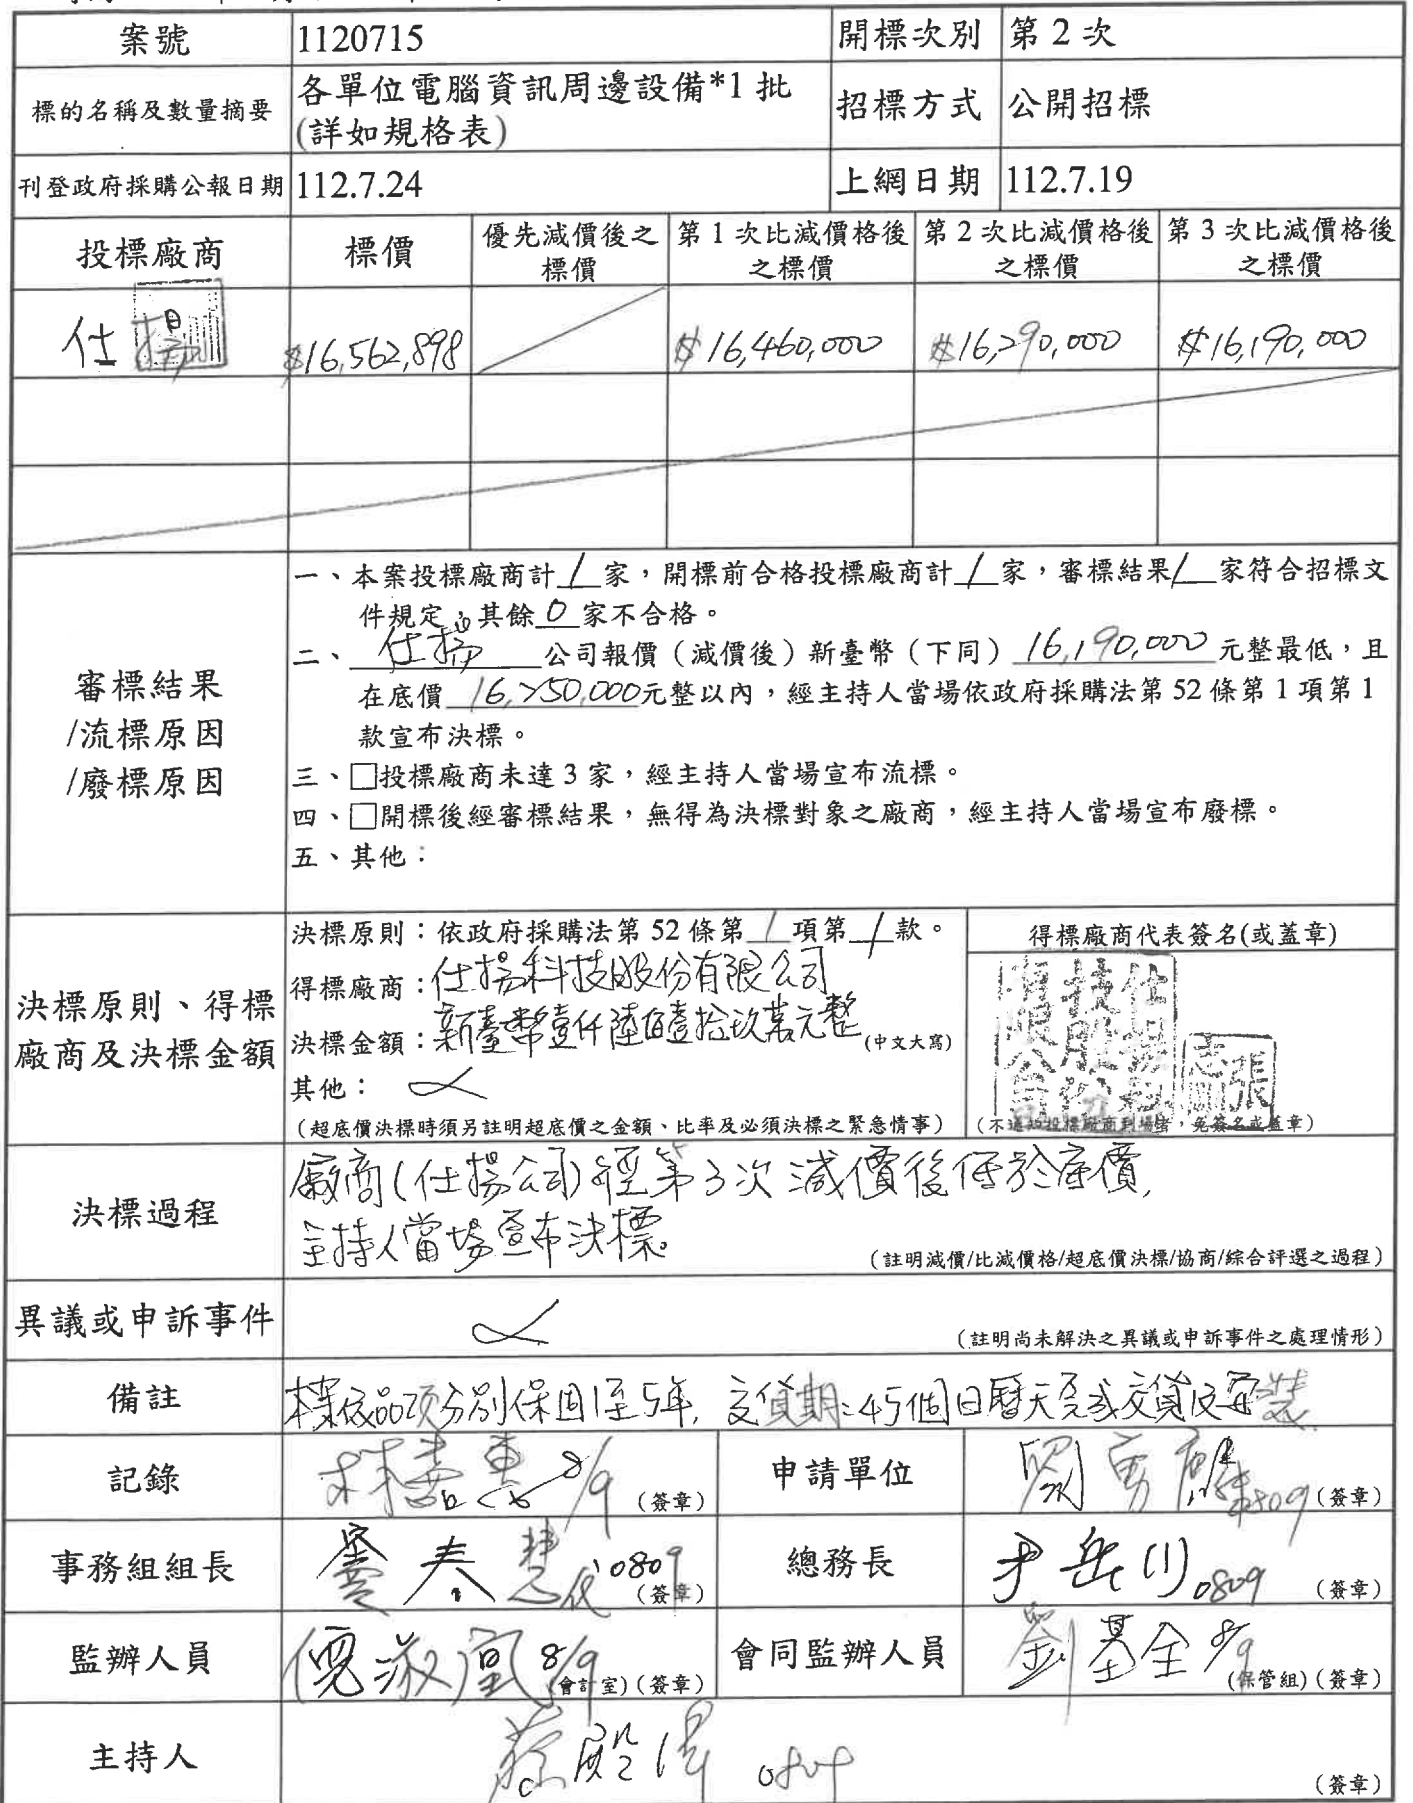 案號
1120715
開標次別
第 2 次
標的名稱及數量摘要
各單位電腦資訊周邊設備*1 批
(詳如規格表)
招標方式
公開招標
刊登政府採購公報日期
112.7.24
上網日期
112.7.19
投標廠商
標價
優先減價後之
標價
第 1 次比減價格後
之標價
第 2 次比減價格後
之標價
第 3 次比減價格後
之標價
仕揚
$16,562,898
$16,460,000
$16,290,000
$16,190,000
審標結果
/流標原因
/廢標原因
一、本案投標廠商計 1 家，開標前合格投標廠商計 1 家，審標結果 1 家符合招標文
件規定，其餘 0 家不合格。
二、仕揚公司報價（減價後）新臺幣（下同）16,190,000元整最低，且
在底價 16,250,000元整以內，經主持人當場依政府採購法第 52 條第 1 項第 1
款宣布決標。
三、□投標廠商未達 3 家，經主持人當場宣布流標。
四、□開標後經審標結果，無得為決標對象之廠商，經主持人當場宣布廢標。
五、其他：
決標原則、得標
廠商及決標金額
決標原則：依政府採購法第 52 條第 1 項第 1 款。
得標廠商：仕揚科技股份有限公司
決標金額：新臺幣壹仟陸佰壹拾玖萬元整(中文大寫)
其他：
(超底價決標時須另註明超底價之金額、比率及必須決標之緊急情事)
得標廠商代表簽名(或蓋章)
仕揚科技股份有限公司
張志
(不通知投標廠商到場者，免簽名或蓋章)
決標過程
廠商(仕揚公司)經第3次減價後低於底價,
主持人當場宣布決標。
(註明減價/比減價格/超底價決標/協商/綜合評選之過程)
異議或申訴事件
(註明尚未解決之異議或申訴事件之處理情形)
備註
本案依品項分別保固1至5年, 交貨期:45個日曆天完成交貨及安裝
記錄
8/9
(簽章)
申請單位
0809
(簽章)
事務組組長
代 0809
(簽章)
總務長
尹岳川 0809
(簽章)
監辦人員
倪淑凰 8/9
(會計室)(簽章)
會同監辦人員
劉基全 8/9
(保管組)(簽章)
主持人
(簽章)